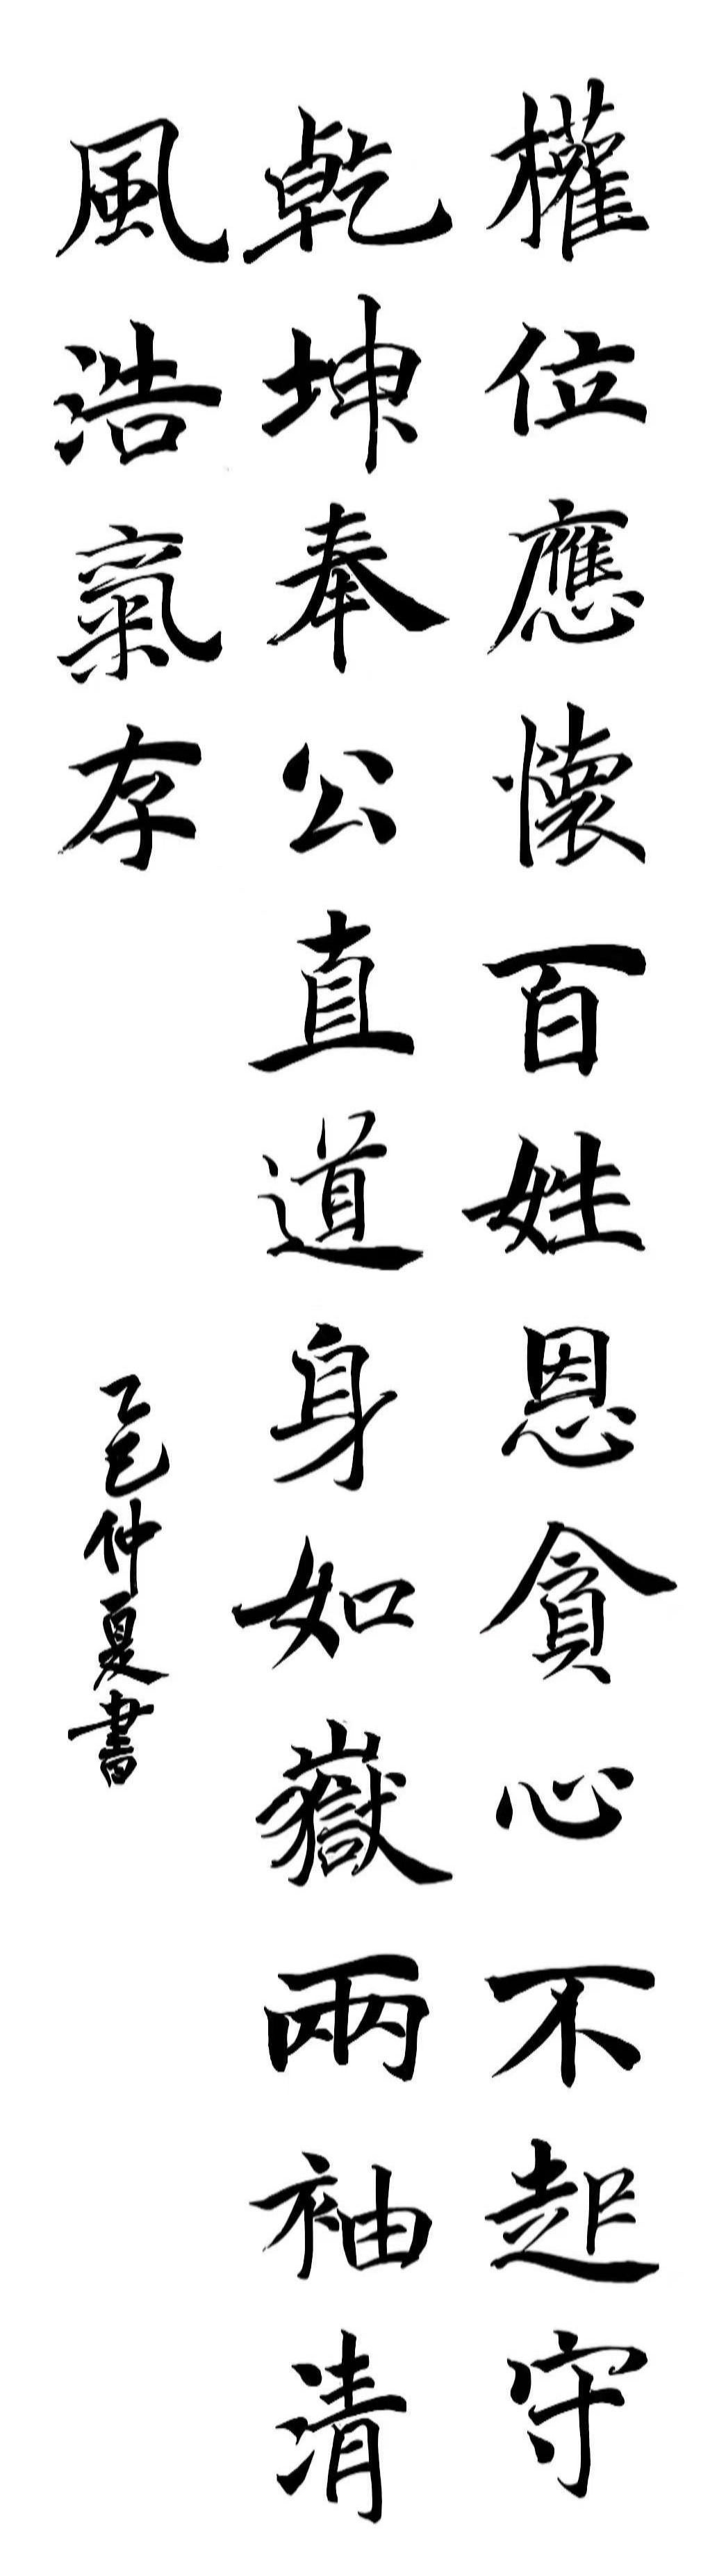 權位應懷百姓恩貪心不起守
乾坤奉公直道身如嶽兩袖清
風浩氣存
乙巳仲夏書